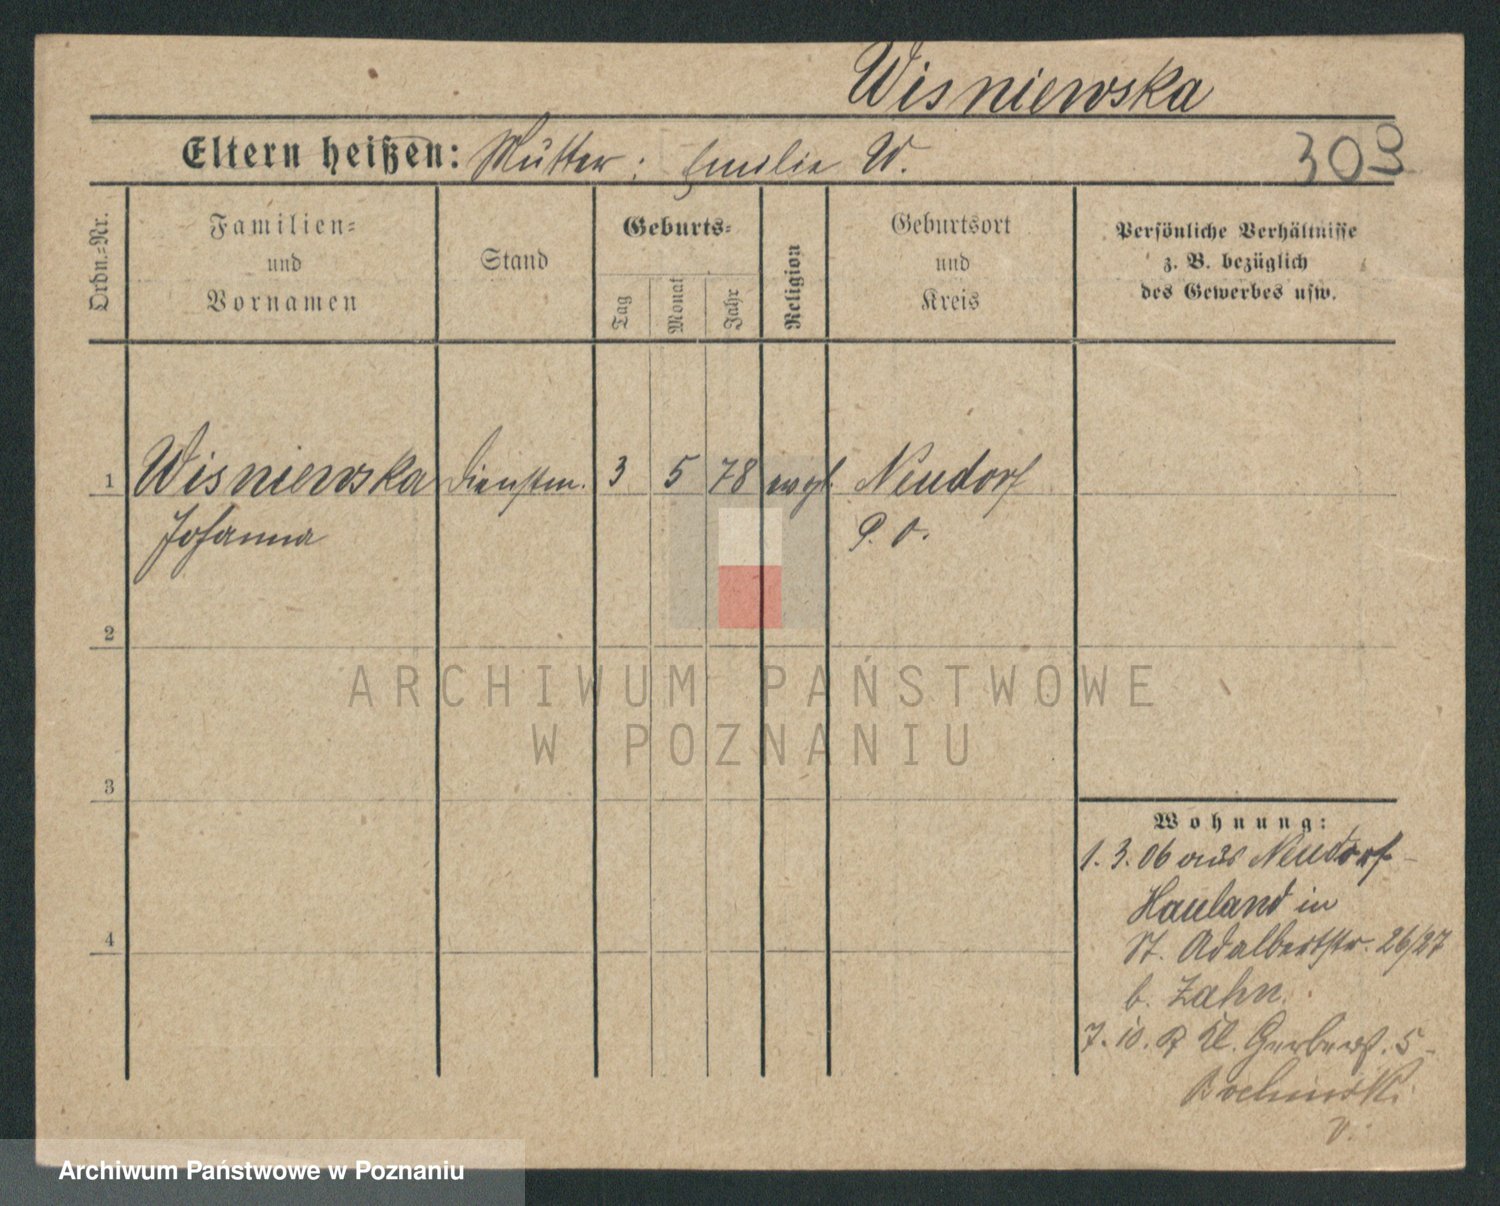 Wisniewska
Eltern heißen: Mutter: Emilie W.
309
Ordn.-Nr.
Familien-
und
Vornamen
Stand
Geburts-
Tag
Monat
Jahr
Religion
Geburtsort
und
Kreis
Persönliche Verhältnisse
z. B. bezüglich
des Gewerbes usw.
1 Wisniewska Dienstm. 3 5 78 evgl. Neudorf
Johanna P. O.
2
3
4
ARCHIWUM PAŃSTWOWE
W POZNANIU
Wohnung:
1. 3. 06 aus Neudorf-
Hauland in
St. Adalbertstr. 26/27
b. Zahn.
7. 10. Kl. Gerberst. 5
Archiwum Państwowe w Poznaniu